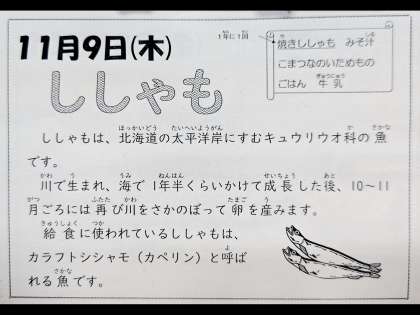 11月9日(木)
1年に1回
焼きししゃも みそ汁
こまつなのいためもの
ごはん 牛乳
ししゃも
ししゃもは、北海道の太平洋岸にすむキュウリウオ科の魚
です。
川で生まれ、海で1年半くらいかけて成長した後、10〜11
月ごろには再び川をさかのぼって卵を産みます。
給食に使われているししゃもは、
カラフトシシャモ(カペリン)と呼ば
れる魚です。